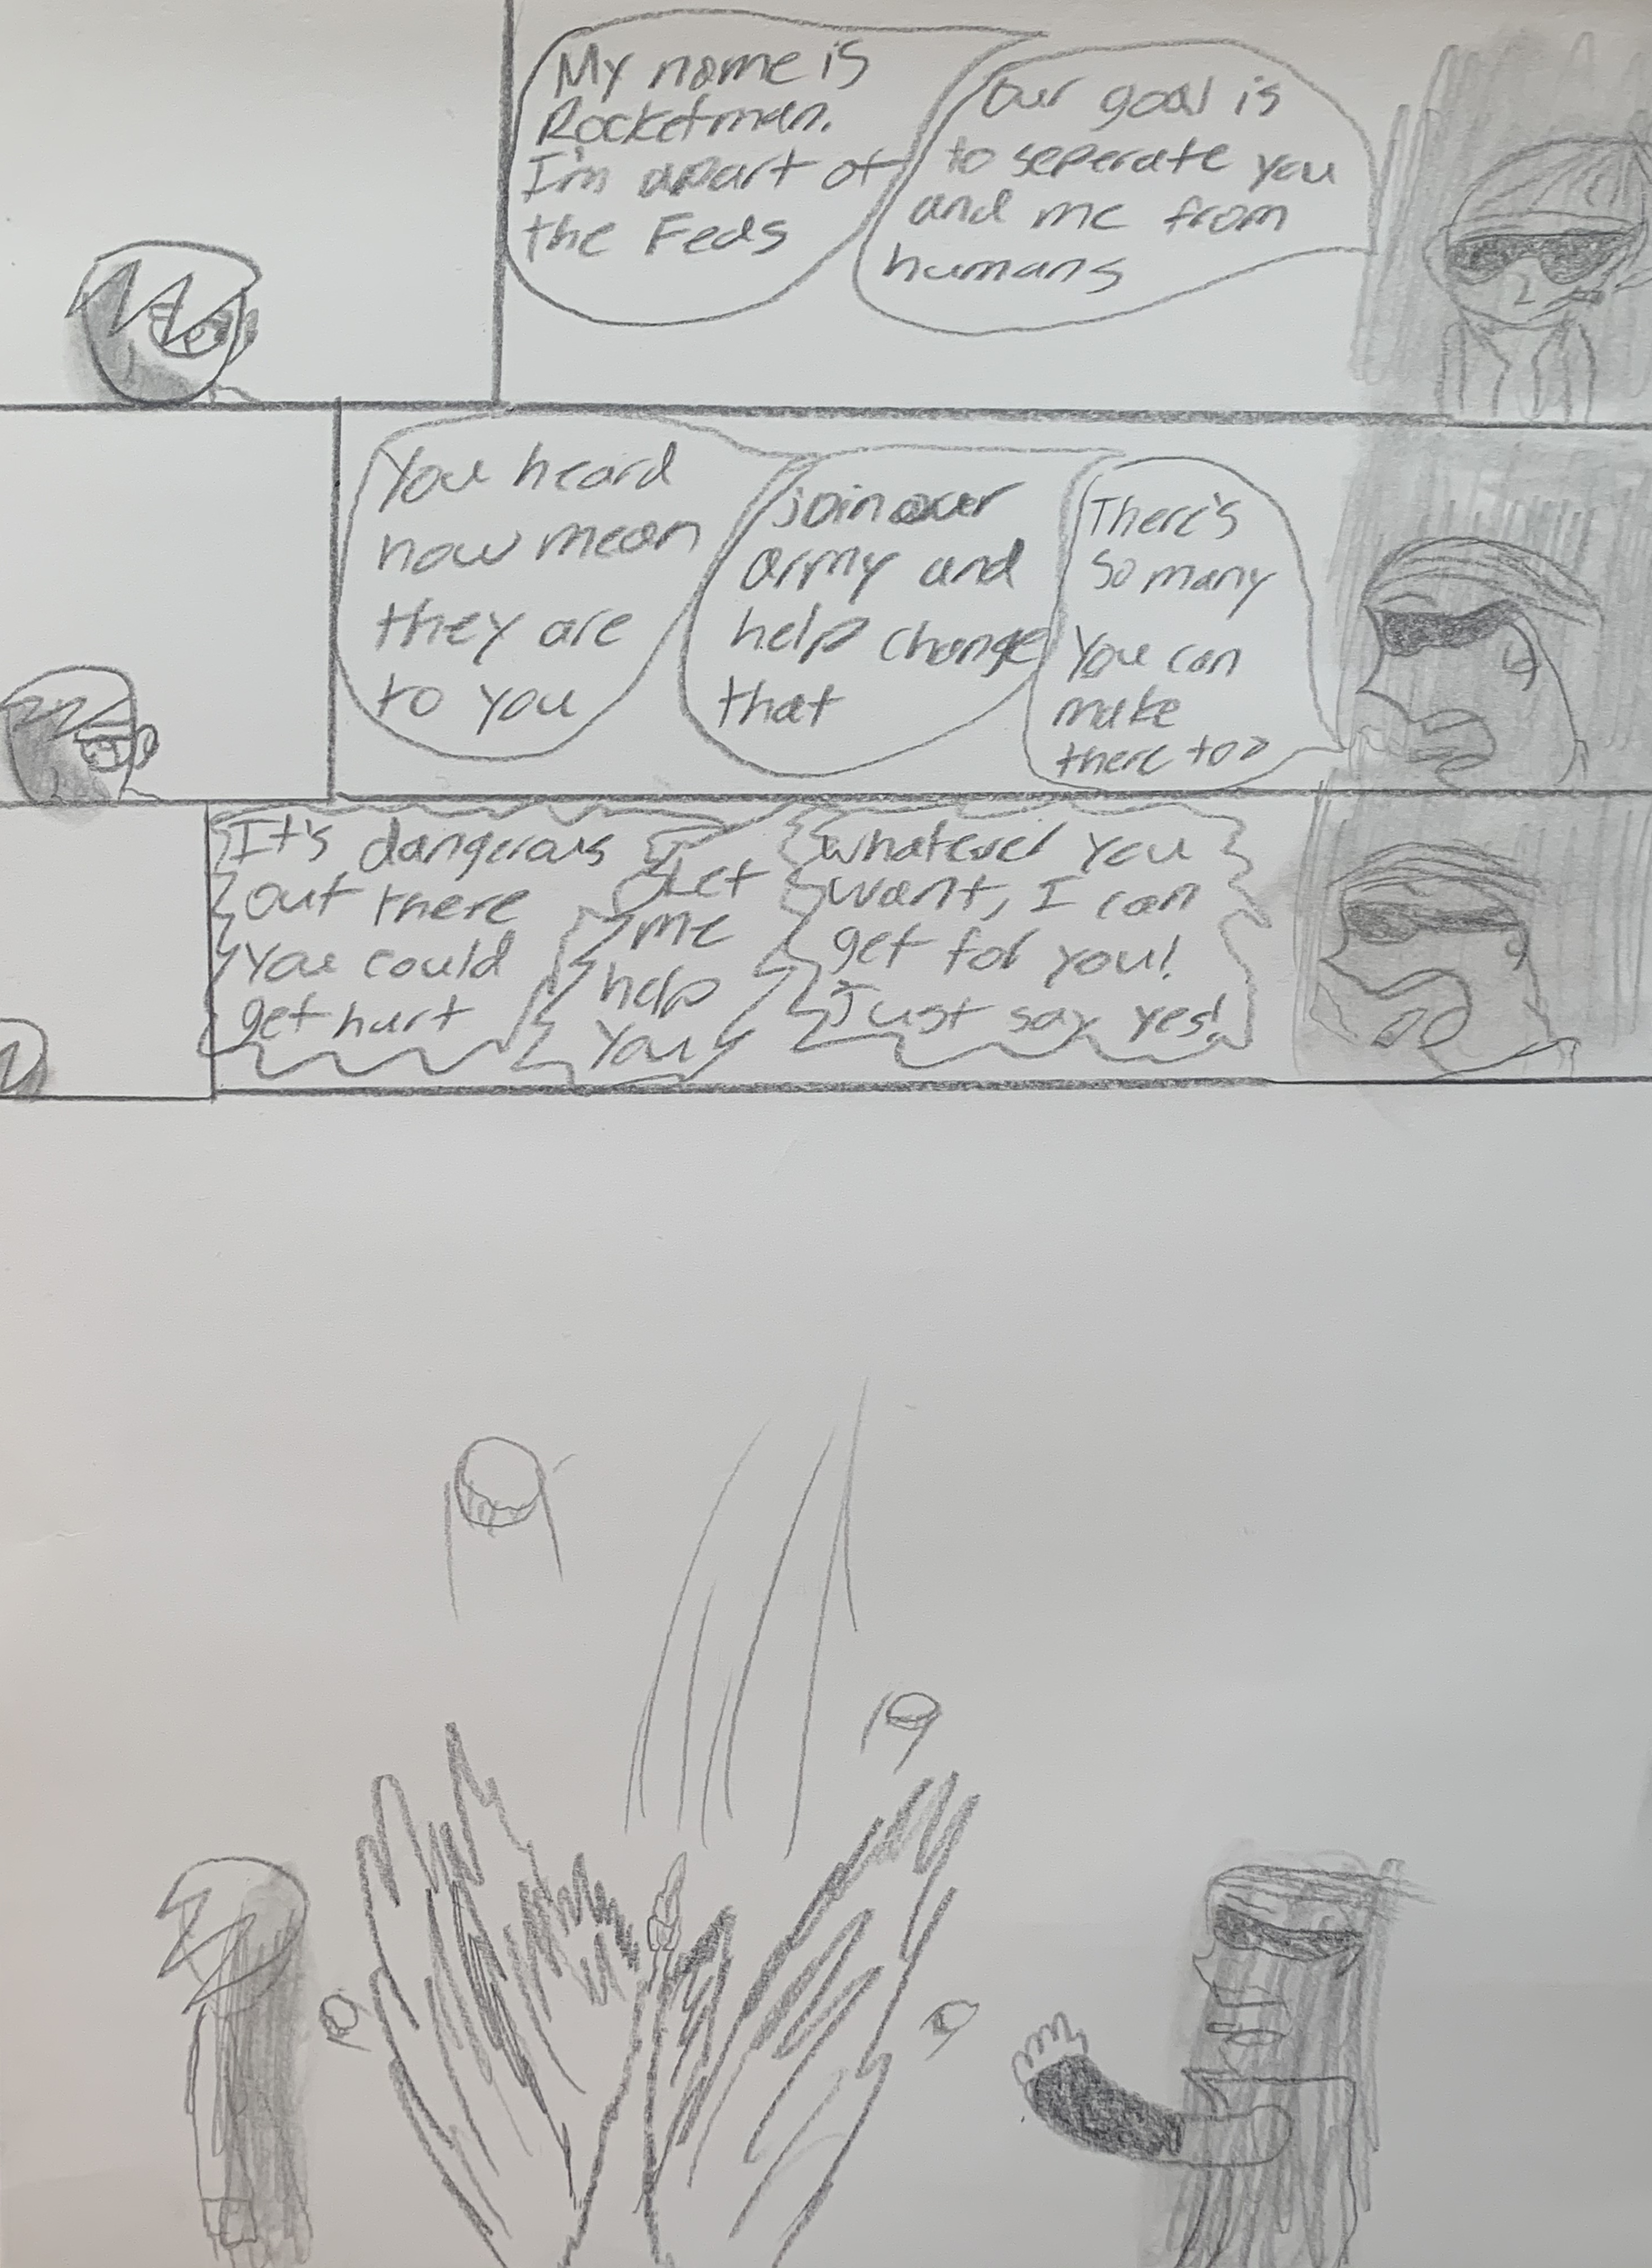 My name is
Rocketman.
I'm apart of
the Feds
Our goal is
to seperate you
and me from
humans
You heard
how mean
they are
to you
join our
army and
help change
that
There's
so many
you can
make
there to?
It's dangerous
out there
you could
get hurt
Let
me
help
you
whatever you
want, I can
get for you!
Just say yes!